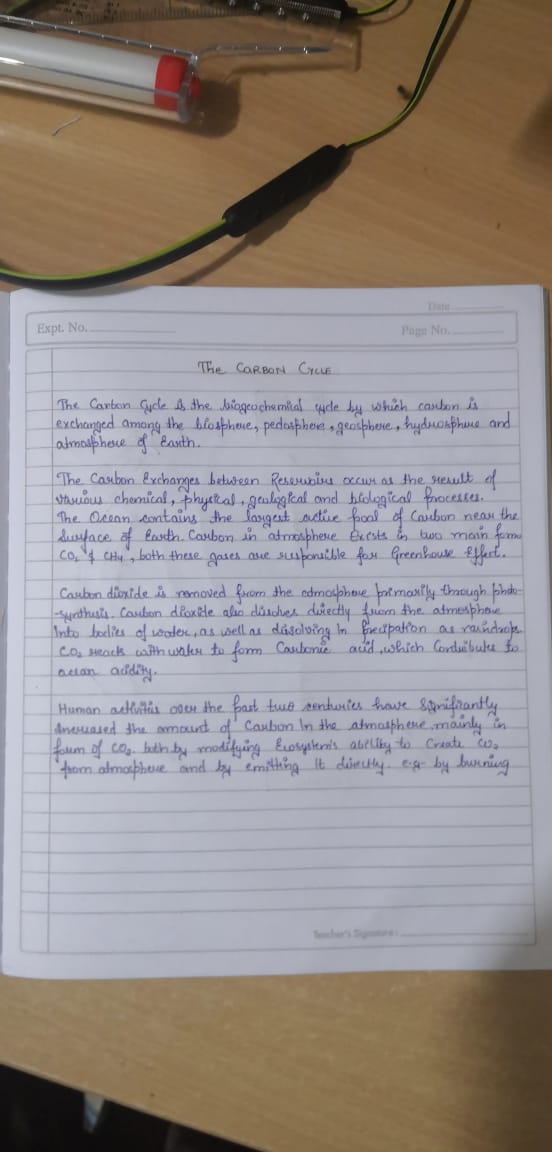 Date
Expt. No.
Page No.
The CARBON CYCLE
The Carbon Cycle is the biogeochemical cycle by which carbon is
exchanged among the biosphere, pedosphere, geosphere, hydrosphere and
atmosphere of Earth.
The Carbon Exchanges between Reservoirs occur as the result of
various chemical, physical, geological and biological processes.
The Ocean contains the largest active pool of Carbon near the
Surface of Earth. Carbon in atmosphere Exists in two main forms
CO2 & CH4, both these gases are responsible for Greenhouse Effect.
Carbon dioxide is removed from the atmosphere primarily through photo-
-synthesis. Carbon dioxide also dissolves directly from the atmosphere
Into bodies of water, as well as dissolving In Precipation as raindrops
CO2 reacts with water to form Carbonic acid, which Contributes to
ocean acidity.
Human activities over the past two centuries have Significantly
Increased the amount of Carbon In the atmosphere, mainly in
form of CO2. both by modifying Ecosystem's ability to Create CO2
from atmosphere and by emitting It directly. e.g- by burning
Teacher's Signature: